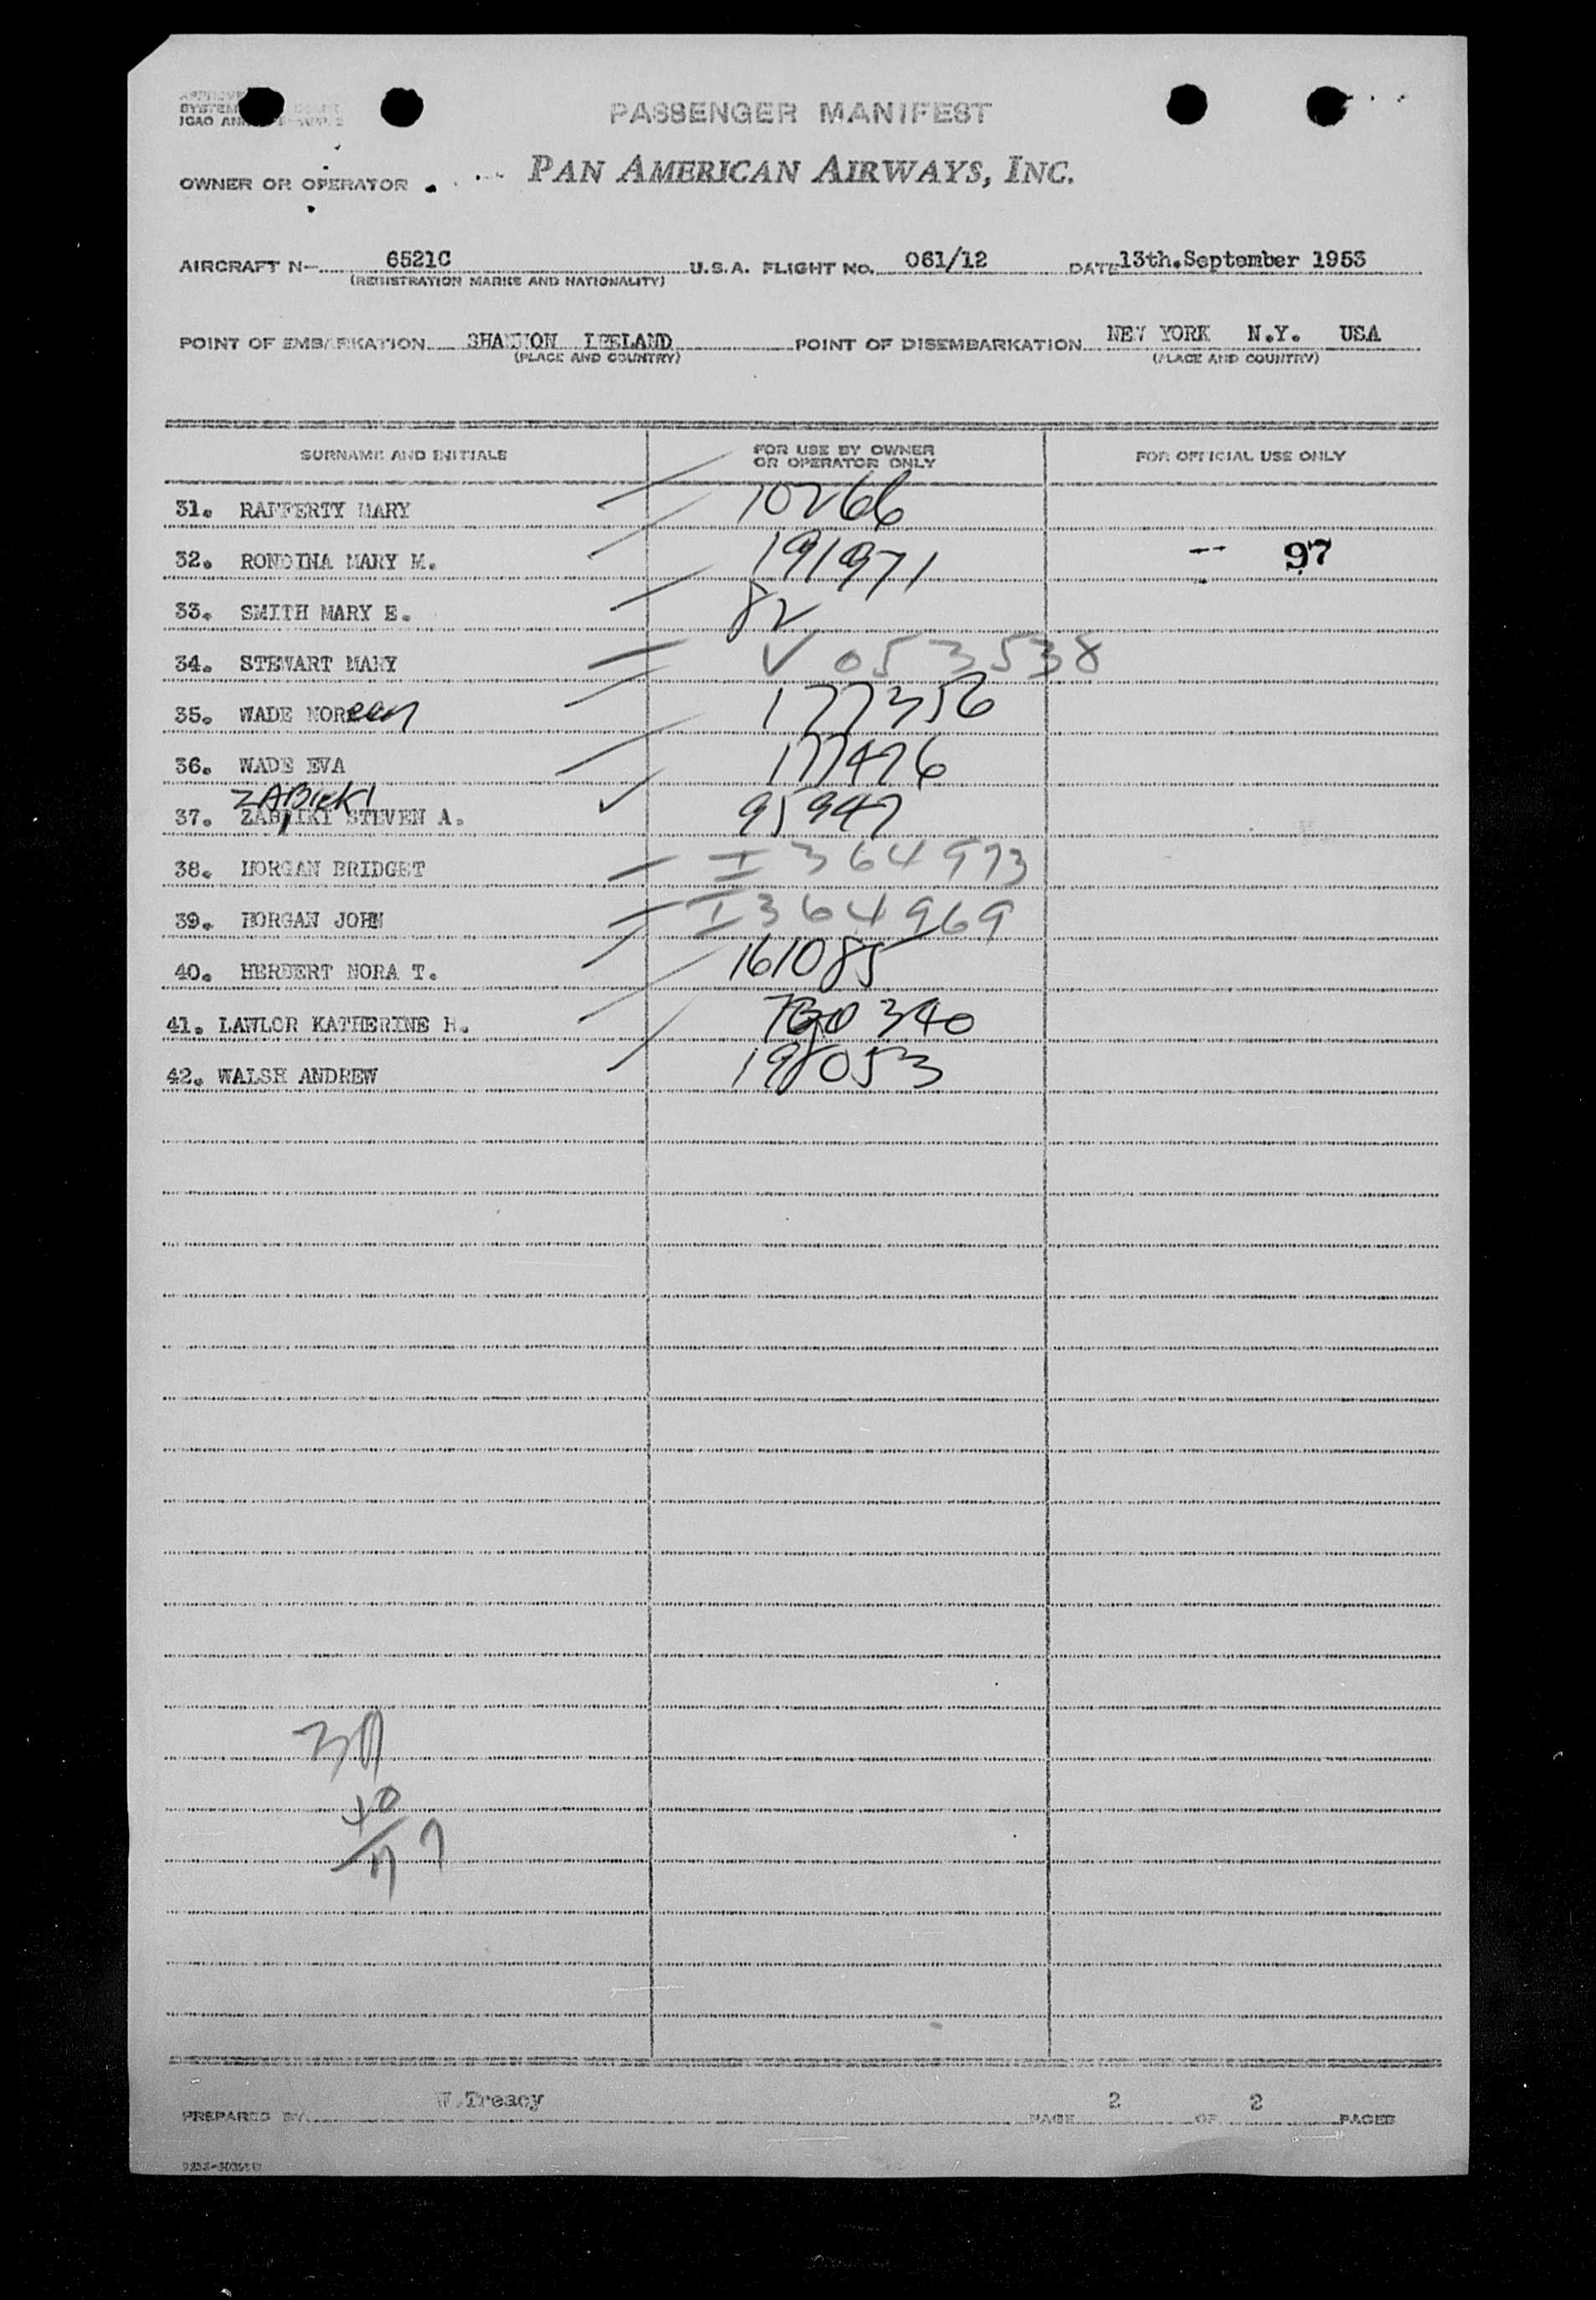 PASSENGER MANIFEST
OWNER OR OPERATOR PAN AMERICAN AIRWAYS, INC.
AIRCRAFT N- 6521C U.S.A. FLIGHT NO. 061/12 DATE 13th.September 1953
(REGISTRATION MARKS AND NATIONALITY)
POINT OF EMBARKATION SHANNON IRELAND POINT OF DISEMBARKATION NEW YORK N.Y. USA
(PLACE AND COUNTRY) (PLACE AND COUNTRY)
SURNAME AND INITIALS FOR USE BY OWNER OR OPERATOR ONLY FOR OFFICIAL USE ONLY
31. RAFFERTY MARY 10266
32. RONDINA MARY M. 191971 97
33. SMITH MARY E. 82
34. STEWART MARY V 053538
35. WADE NOReen 177356
36. WADE EVA 177476
ZABICKI
37. STEVEN A. 95947
38. HORGAN BRIDGET I 364973
39. HORGAN JOHN I 364969
40. HERBERT NORA T. 161085
41. LAWLOR KATHERINE H. 340
42. WALSH ANDREW 198053
40
PREPARED BY W.Treacy PAGE 2 OF 2 PAGES